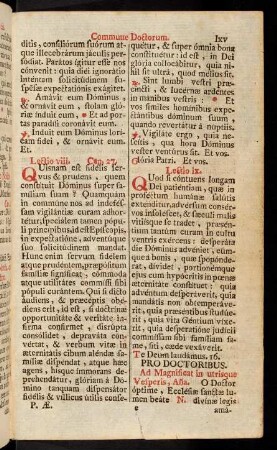 Commune Doctorum. lxv
ditis, consiliórum suórum at-
que illecebrárum jáculis per-
sonet. Parátos ígitur esse nos
cónvenit: quia diei ignorátio
inténtam solicitúdinem
expectatiónis exágitet.
℟. Amávit eum Dóminus,
& ornávit eum, stolam gló-
riæ índuit eum. * Et ad por-
tas paradísi coronávit eum.
℣. Induit eum Dóminus lorí-
cam fídei, & ornávit eum.
Et.
Lectio viij. Cap. 27.
QUisnam est fidélis ser-
vus & prudens, quem
constítuit Dóminus super fa-
míliam suam? Quamquam
in commúne nos ad indefés-
sam vigilántiæ curam adhor-
tétur, speciálem tamen pópu-
li princípibus, id est Epíscopis,
in expectatióne, adventúque
suo solicitúdinem mandat.
Hunc enim servum fidélem
atque prudéntem, præpósitum
famíliæ signíficat; cómmoda
atque utilitátes commíssi sibi
pópuli curántem. Qui si dicto
áudiens, & præcéptis obé-
diens erit, id est, si doctrínæ
opportunitáte & veritáte in-
fírma confírmet, disrúpta
consólidet, depraváta con-
vértat, & verbum vitæ in
æternitátis cibum aléndæ fa-
míliæ dispénset, atque hæc
agens, hisque ímmorans de-
prehendátur, glóriam a Dó-
mino tamquam dispensátor
fidélis & víllicus útilis conse-
P. Æ.
quétur, & super ómnia bona
constituétur: id est, in Dei
glória collocábitur, quia ni-
hil sit ultra, quod mélius sit.
℟. Sint lumbi vestri præ-
cíncti, & lucérnæ ardéntes
in mánibus vestris: * Et vos
símiles homínibus expectán-
tibus dóminum suum, quando
revertátur a núptiis.
℣. Vigiláte ergo, quia ne-
scítis, qua hora Dóminus
vester ventúrus sit. Et vos.
Glória Patri. Et vos.
Lectio ix.
QUod si contúens longam
Dei patiéntiam, quæ in
proféctum humánæ salútis
exténditur, advérsum consér-
vos insoléscet, & sǽculi malis
vitiísque se tradet, præsén-
tium tantum curam in cultu
ventris exércens: desperáta
die Dóminus advéniet, &
eúmque a bonis, quæ spopón-
derat, dívidet, portionémque
ejus cum hypócritis in pœnæ
æternitáte constítuet: quia
advéntum desperáverit, quia
mandátis non obtemperáve-
rit, quia præséntibus studúe-
rit, quia vita Géntium víxe-
rit, quia desperatióne judícii
commíssam sibi famíliam fa-
me, siti, cæde vexáverit.
Te Deum laudámus. 16.
PRO DOCTORIBUS.
Ad Magnificat in utrisque
Vesperis, Aña. O Doctor
óptime, Ecclésiæ sanctæ lu-
men beáte N. divínæ legis
e amá-